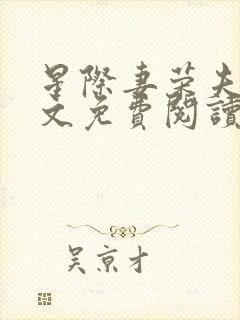 星際妻榮夫
文免費閱讀
吴京才